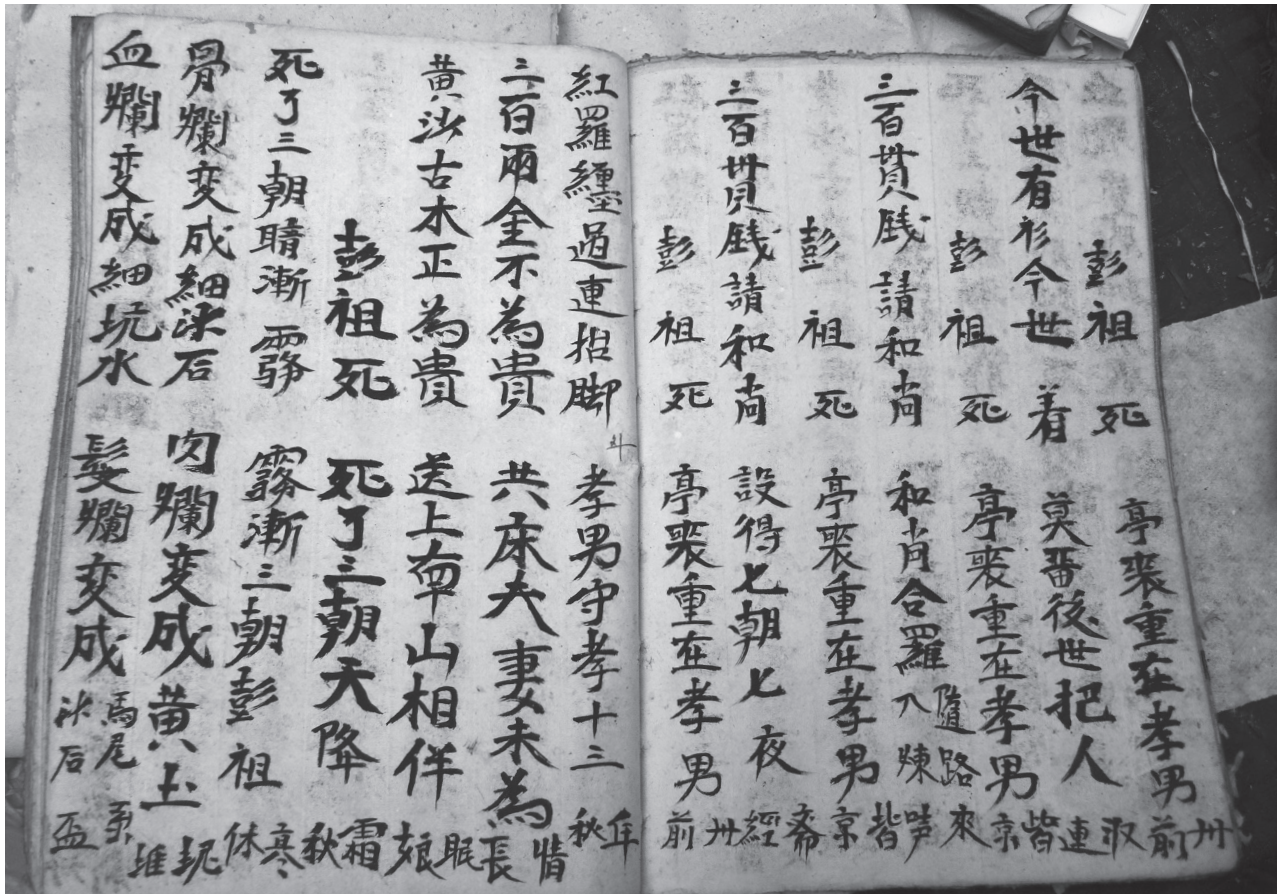 彭祖死 亭喪重在孝男前 卅
今世有衫今世着 莫畨後世把人連
彭祖死 亭喪重在孝男京皆
三百貫銭請和尚 和尚合羅入
隨路來
彭祖死 亭喪重在孝男京皆
三百貫銭請和尚 設得七朝七夜經斋
彭祖死 亭喪重在孝男前 卅
紅羅纏過連招脚 孝男守孝十三秋 年
三百兩金不為貴 共床夫妻未為長 情
黄沙古木正為貴 送上南山相伴眠 娘
彭祖死 死了三朝天降霜 秋
死了三朝晴漸霧 霧漸三朝彭祖休 寒
骨爛变成細沙石 肉爛变成黄土堆 坭
血爛变成細坑水 髮爛变成馬尾
沙石